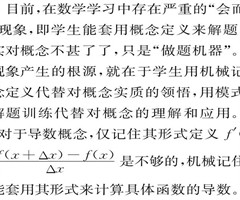 目前,在数学学习中存在严重的“会而
现象,即学生能套用概念定义来解题
实对概念不甚了了,只是“做题机器”。
现象产生的根源,就在于学生用机械记
念定义代替对概念实质的领悟,用模式
解题训练代替对概念的理解和应用。
对于导数概念,仅记住其形式定义 f′(
f(x+Δx)-f(x)/Δx 是不够的,机械记住
能套用其形式来计算具体函数的导数。